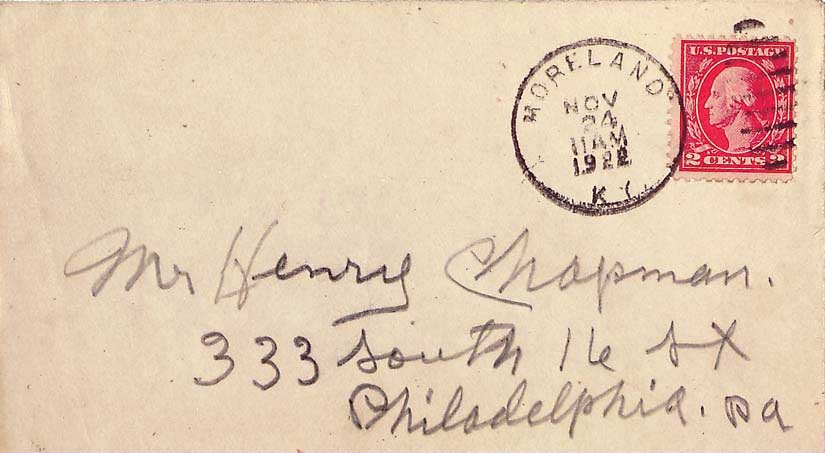 MORELAND
NOV
24
11 AM
1922
KY.
U.S. POSTAGE
2 CENTS 2
Mr Henry Chapman.
333 South 16 St
Philadelphia. Pa